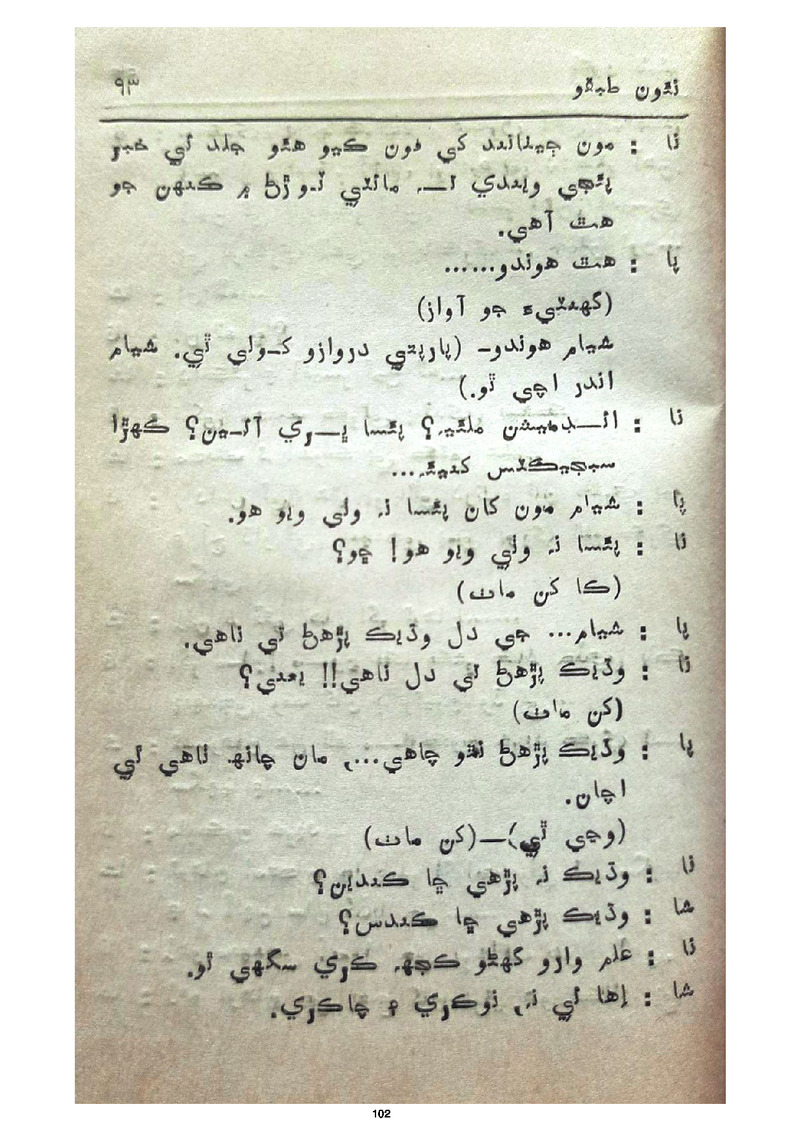 نئون طبقو ۹۳
نا : مون جيٺانند کي فون ڪيو هئو جلد ئي خبر
پئجي ويندي ته مائٽي ٽوڙڻ ۾ ڪنهن جو
هٿ آهي.
پا : هٿ هوندو......
(گهنٽيءَ جو آواز)
شيام هوندو– (پارپتي دروازو کولي ٿي. شيام
اندر اچي ٿو.)
نا : ائڊميشن ملئيہ؟ پئسا ڀري آئين؟ ڪهڙا
سبجيڪٽس کنيئہ...
پا : شيام مون کان پئسا نہ وٺي ويو هو.
نا : پئسا نہ وٺي ويو هو! ڇو؟
(ڪا کن ماٺ)
پا : شيام... جي دل وڌيڪ پڙهڻ ئي ناهي.
نا : وڌيڪ پڙهڻ ئي دل ناهي!! يعني؟
(کن ماٺ)
پا : وڌيڪ پڙهڻ نٿو چاهي...، مان چانهہ ٺاهي ٿي
اچان.
(وڃي ٿي)—(کن ماٺ)
نا : وڌيڪ نہ پڙهي ڇا ڪندين؟
شا : وڌيڪ پڙهي ڇا ڪندس؟
نا : علم وارو گهڻو ڪجهہ ڪري سگهي ٿو.
شا : اِها ئي نہ، نوڪري ۽ چاڪري.
102